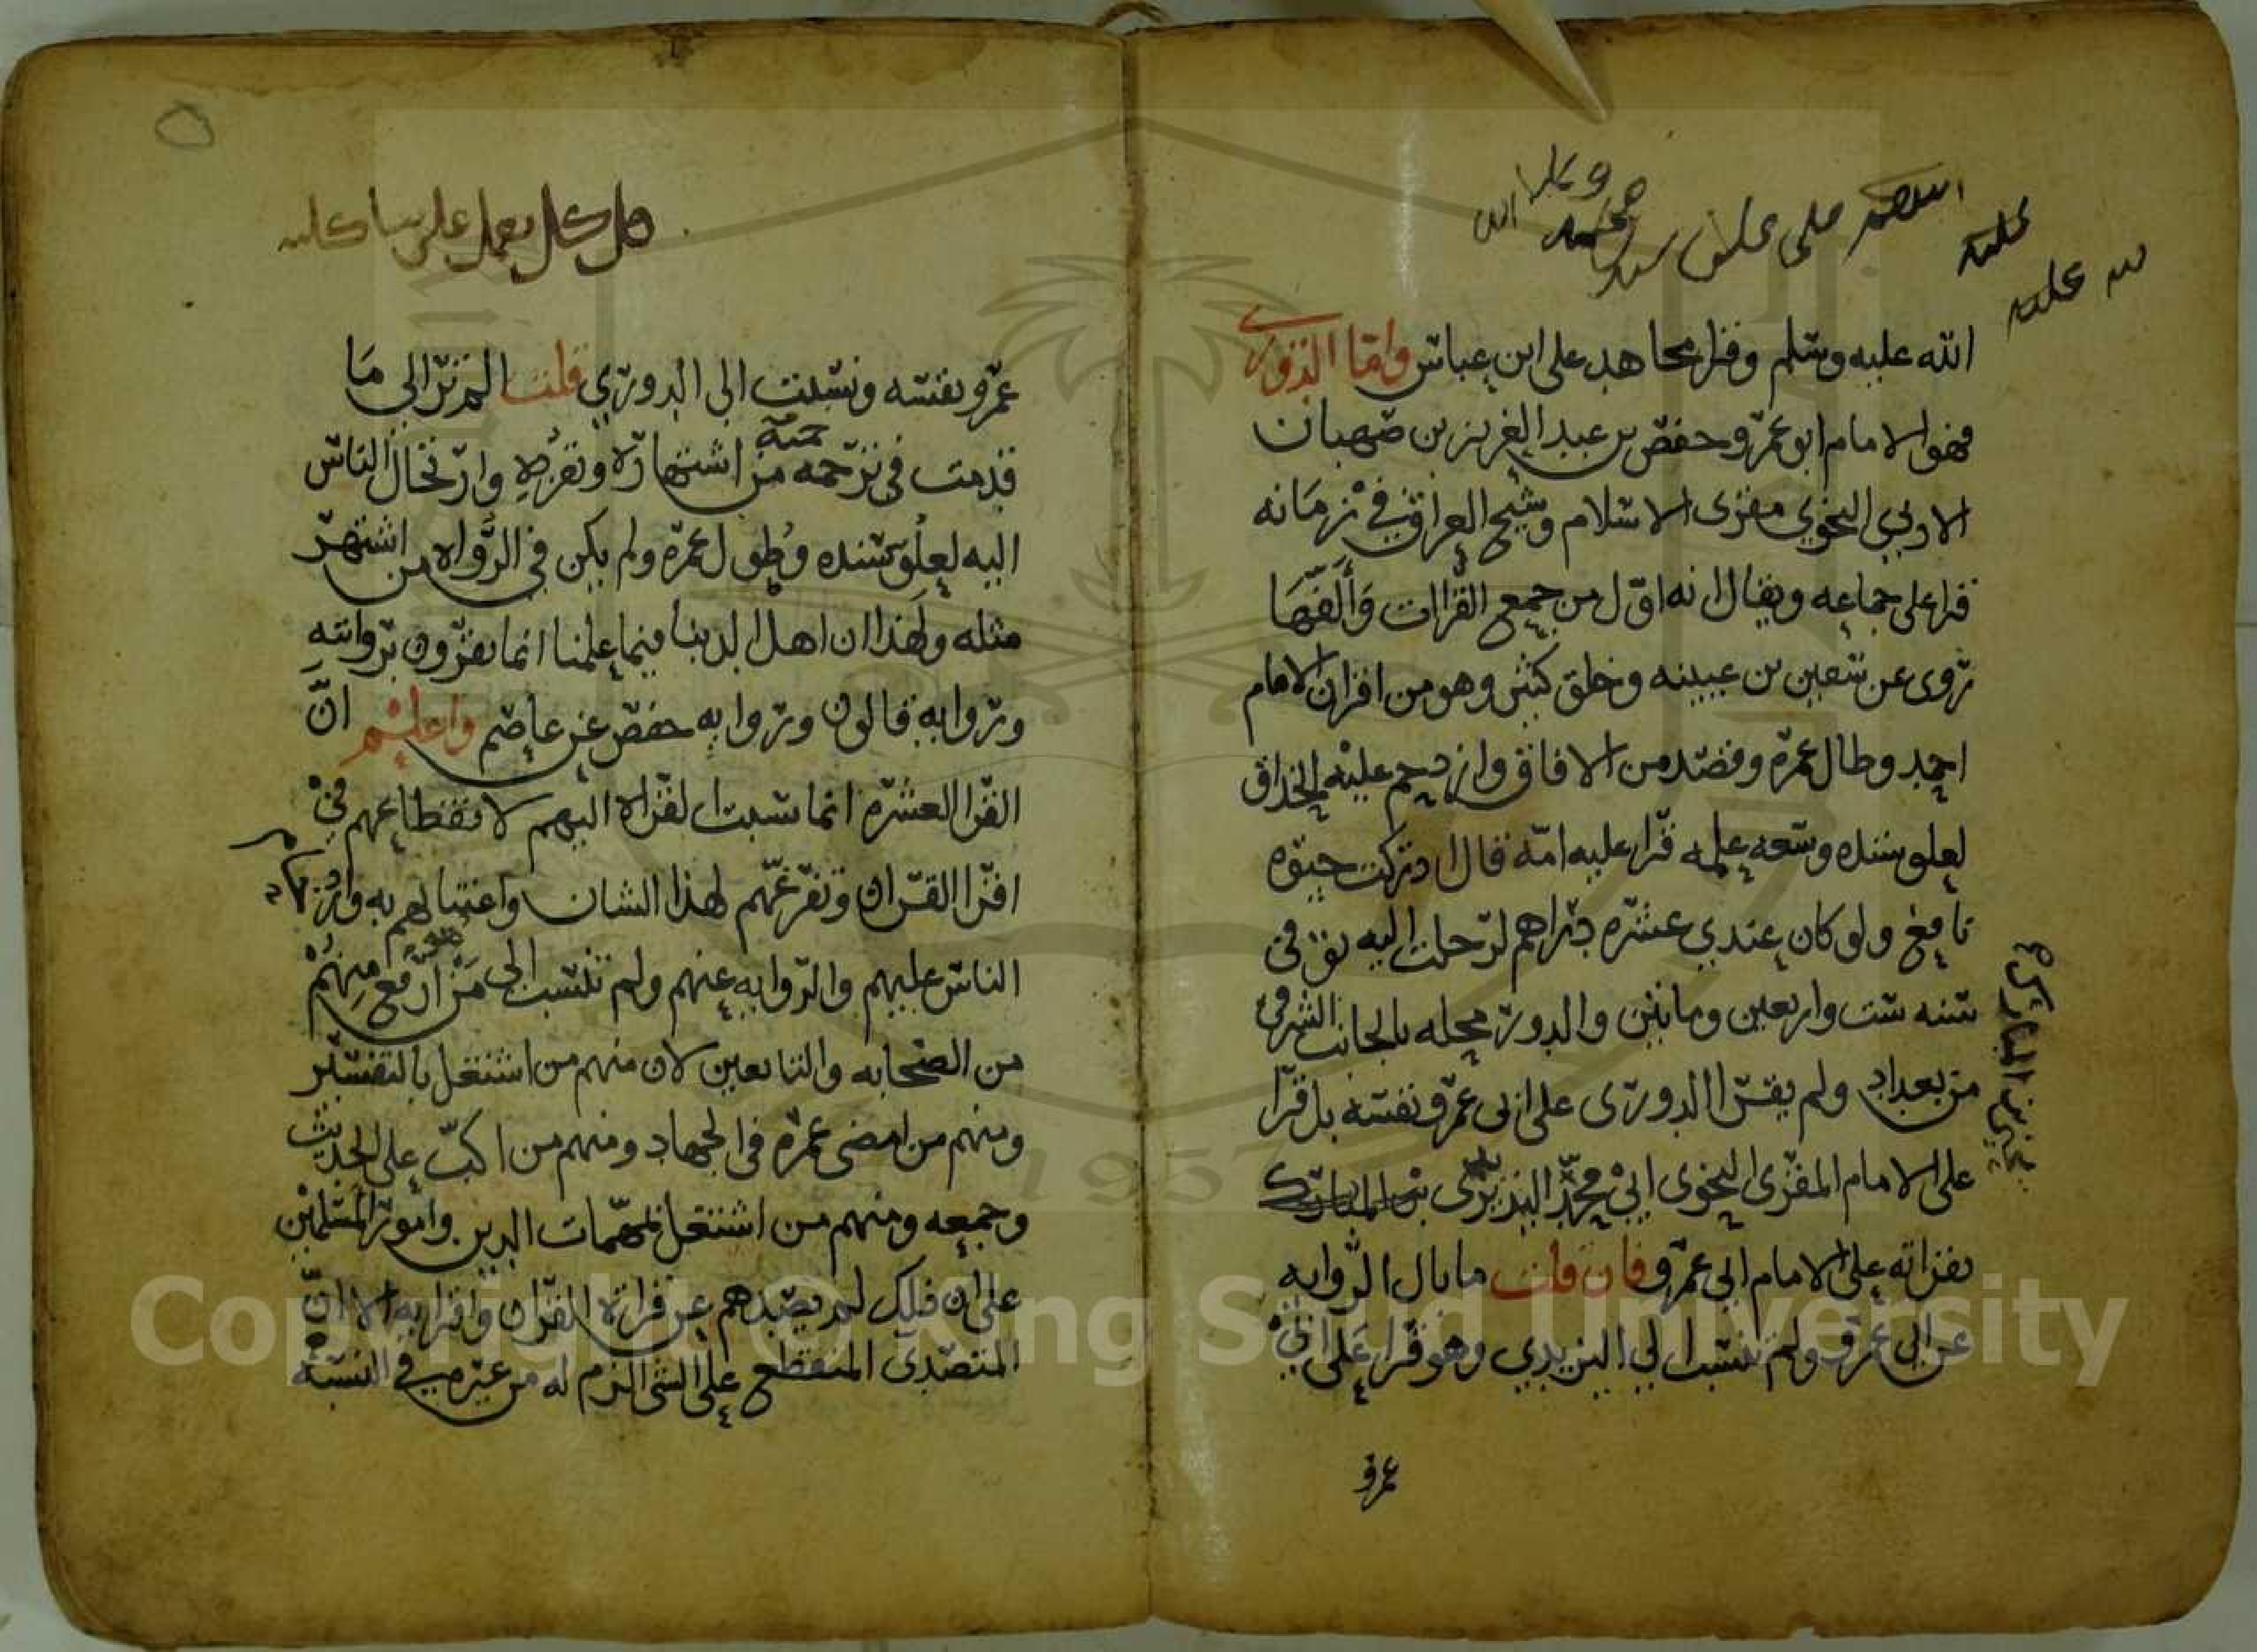 اللهم صلي على سيدنا محمد وعلى
الله عليه وسلم وقرا مجاهد على ابن عباس واما الدوري
فهو الامام ابو عمرو حفص بن عبد العزيز بن صهبان
الازدي النحوي مقرى الاسلام وشيخ العراق في زمانه
قرا على جماعه ويقال انه اول من جمع القراات وألفها
روى عن سفين بن عيينه وخلق كثير وهو من اقران الامام
احمد وطال عمره وقصد من الافاق وازدحم عليه الحذاق
لعلو سنده وسعه علمه قرا عليه امه قال ادركت حيوه
نافع ولو كان عندي عشره دراهم لرحلت اليه توفي
سنه ست واربعين وماتين والدور محله بالجانب الشرقي
من بغداد ولم يقرا الدوري على ابي عمرو نفسه بل قرا
على الامام المقرى النحوى ابي محمد اليزيدى بن المبارك
بقراته على الامام ابي عمرو فان قلت ما بال الروايه
عن ابي عمرو ولم تنسب الي اليزيدي وهو قرا على ابي
عمرو
قل كل يعمل على شاكلته
عمرو نفسه ونسبت الى الدوري قلت الم تر الي ما
قدمت في ترجمته من اشتهاره وتفرده وارتحال الناس
اليه لعلو سنده وطول عمره ولم يكن في الرواه من اشتهر
مثله ولهذا ان اهل الدنيا فيما علمنا انما يقرون بروايته
وروايه قالون وروايه حفص عن عاصم واعلم ان
القرا العشره انما نسبت القراه اليهم لانقطاعهم في
اقرا القران وتفرغهم لهذا الشان واعتنايهم به وازدحام
الناس عليهم والروايه عنهم ولم تنسب الى من هو ارفع منهم
من الصحابه والتابعين لان منهم من اشتغل بالتفسير
ومنهم من امضى عمره في الجهاد ومنهم من اكب على الحديث
وجمعه ومنهم من اشتغل بمهمات الدين وامور المسلمين
على ان ذلك لم يصدهم عن قراة القران واقرايه الا ان
المتصدي المنقطع على الشي الزم له من غيره في النسبة